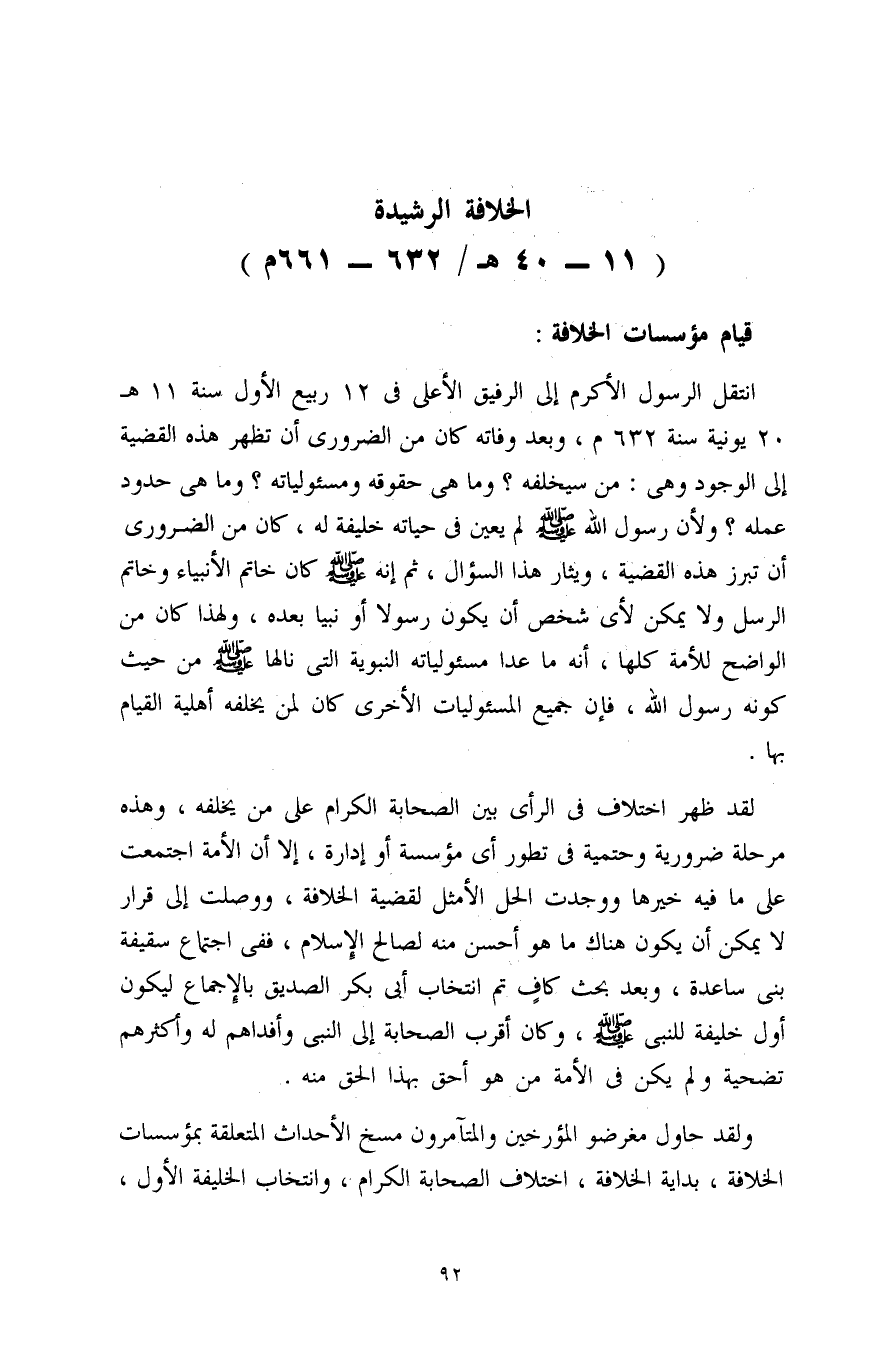 الخلافة الرشيدة
( ١١ – ٤٠ هـ / ٦٣٢ – ٦٦١م )
قيام مؤسسات الخلافة :
انتقل الرسول الأكرم إلى الرفيق الأعلى فى ١٢ ربيع الأول سنة ١١ هـ
٢٠ يونية سنة ٦٣٢ م ، وبعد وفاته كان من الضرورى أن تظهر هذه القضية
إلى الوجود وهى : من سيخلفه ؟ وما هى حقوقه ومسئولياته ؟ وما هى حدود
عمله ؟ ولأن رسول الله ﷺ لم يعين فى حياته خليفة له ، كان من الضرورى
أن تبرز هذه القضية ، ويثار هذا السؤال ، ثم إنه ﷺ كان خاتم الأنبياء وخاتم
الرسل ولا يمكن لأى شخص أن يكون رسولا أو نبيا بعده ، ولهذا كان من
الواضح للأمة كلها ، أنه ما عدا مسئولياته النبوية التى نالها ﷺ من حيث
كونه رسول الله ، فإن جميع المسئوليات الأخرى كان لمن يخلفه أهلية القيام
بها .
لقد ظهر اختلاف فى الرأى بين الصحابة الكرام على من يخلفه ، وهذه
مرحلة ضرورية وحتمية فى تطور أى مؤسسة أو إدارة ، إلا أن الأمة اجتمعت
على ما فيه خيرها ووجدت الحل الأمثل لقضية الخلافة ، ووصلت إلى قرار
لا يمكن أن يكون هناك ما هو أحسن منه لصالح الإسلام ، ففى اجتماع سقيفة
بنى ساعدة ، وبعد بحث كافٍ تم انتخاب أبى بكر الصديق بالإجماع ليكون
أول خليفة للنبى ﷺ ، وكان أقرب الصحابة إلى النبى وأفداهم له وأكثرهم
تضحية ولم يكن فى الأمة من هو أحق بهذا الحق منه .
ولقد حاول مغرضو المؤرخين والمتآمرون مسخ الأحداث المتعلقة بمؤسسات
الخلافة ، بداية الخلافة ، اختلاف الصحابة الكرام ، وانتخاب الخليفة الأول ،
٩٢